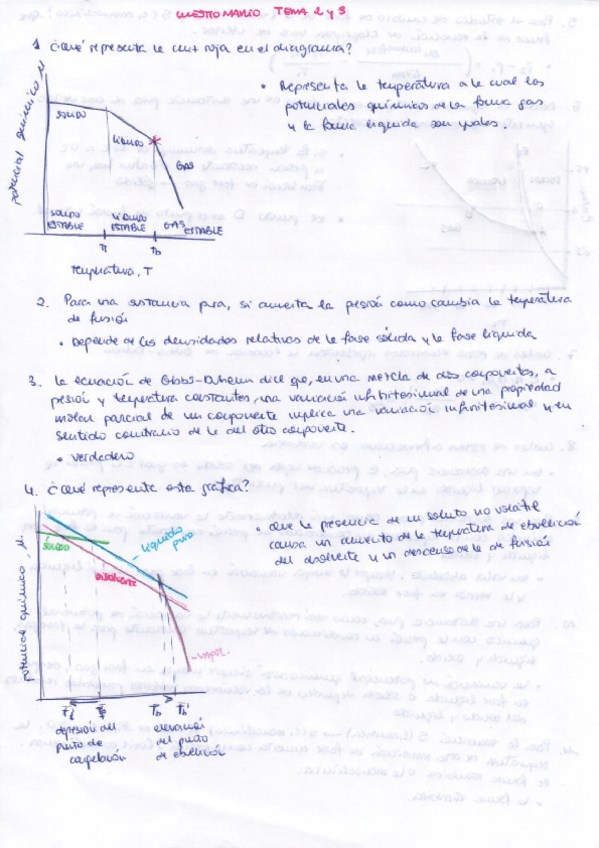 CUESTIONARIO TEMA 2 y 3
1. ¿Qué representa la cruz roja en el diagrama?
potencial químico μ
SÓLIDO
LÍQUIDO
GAS
SÓLIDO ESTABLE
LÍQUIDO ESTABLE
GAS ESTABLE
Tf
Tb
Temperatura, T
• Representa la temperatura a la cual los
potenciales químicos de la forma gas
y la forma líquida son iguales.
2. Para una sustancia pura, si aumenta la presión como cambia la temperatura
de fusión
• Depende de las densidades relativas de la fase sólida y la fase líquida
3. La ecuación de Gibbs-Duhem dice que, en una mezcla de dos componentes, a
presión y temperatura constantes, una variación infinitesimal de una propiedad
molar parcial de un componente implica una variación infinitesimal y en
sentido contrario de la del otro componente.
• verdadero
4. ¿Qué representa esta gráfica?
potencial químico, μ.
sólido
líquido
puro
disolvente
vapor
Tf'
Tf
Tb
Tb'
depresión del
punto de
congelación
elevación
del punto
de ebullición
• Que la presencia de un soluto no volátil
causa un aumento de la temperatura de ebullición
del disolvente y un descenso de la de fusión